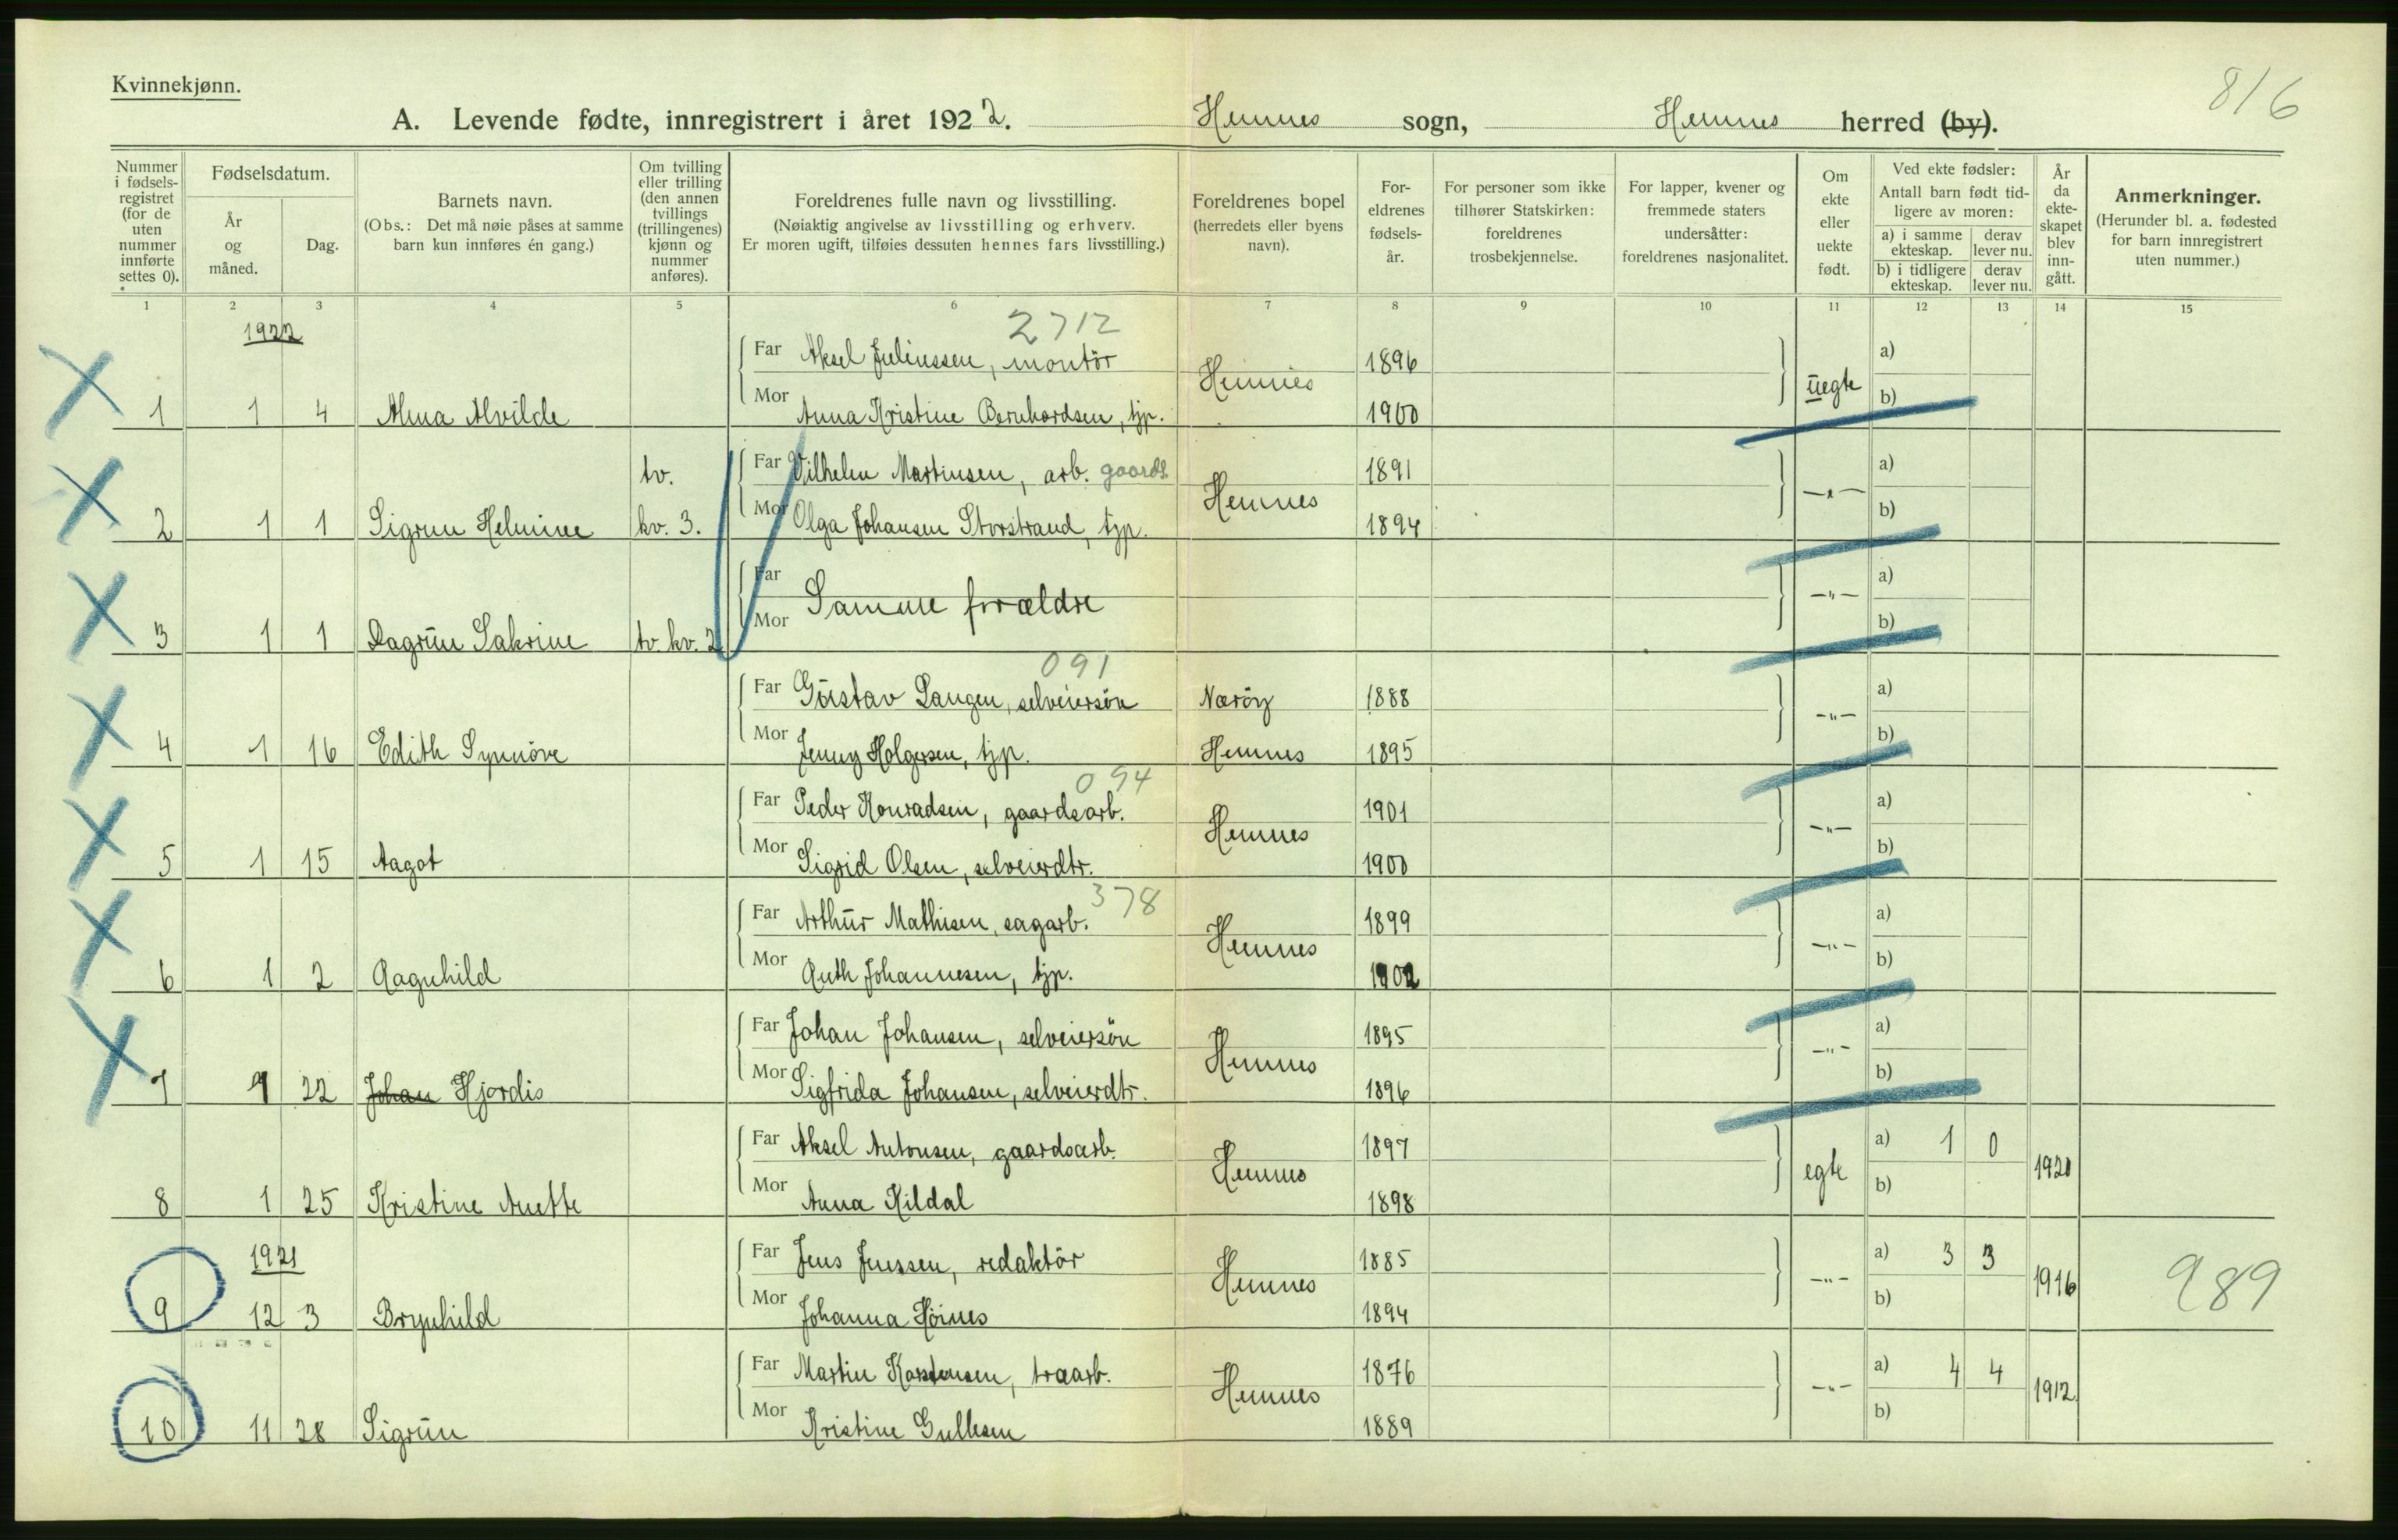 Kvinnekjønn.
816
A. Levende fødte, innregistrert i året 1922. Hemnes sogn, Hemnes herred (by).
Nummer i fødsels-registret (for de uten nummer innførte settes 0).
Fødselsdatum.
År og måned.
Dag.
Barnets navn.
(Obs.: Det må nøie påses at samme barn kun innføres én gang.)
Om tvilling eller trilling (den annen tvillings (trillingenes) kjønn og nummer anføres).
Foreldrenes fulle navn og livsstilling.
(Nøiaktig angivelse av livsstilling og erhverv.
Er moren ugift, tilføies dessuten hennes fars livsstilling.)
Foreldrenes bopel
(herredets eller byens navn).
For-eldrenes fødsels-år.
For personer som ikke tilhører Statskirken: foreldrenes trosbekjennelse.
For lapper, kvener og fremmede staters undersåtter: foreldrenes nasjonalitet.
Om ekte eller uekte født.
Ved ekte fødsler:
Antall barn født tid-ligere av moren:
a) i samme ekteskap.
derav lever nu.
b) i tidligere ekteskap.
derav lever nu.
År da ekte-skapet blev inn-gått.
Anmerkninger.
(Herunder bl. a. fødested for barn innregistrert uten nummer.)
1 2 3 4 5 6 7 8 9 10 11 12 13 14 15
1922
2712
Far Aksel Juliussen, montör Hemnes 1896 uegte a)
1 1 4 Alma Alvilde Mor Anna Kristine Bernhardsen, tjp. 1900 b)
tv. Far Vilhelm Martinsen, arb. gaards Hemnes 1891 —"— a)
2 1 1 Sigrun Helmine kv. 3. Mor Olga Johansen Storstrand, tjp. 1894 b)
Far Samme forældre —"— a)
3 1 1 Dagrun Sakrine tv. kv. 2 Mor b)
091
Far Gustav Langen, selveiersön Næröy 1888 —"— a)
4 1 16 Edith Synnöve Mor Jenny Holgersen, tjp. Hemnes 1895 b)
094
Far Peder Konradsen, gaardsarb. Hemnes 1901 —"— a)
5 1 15 Aagot Mor Sigrid Olsen, selveierdtr. 1900 b)
378
Far Arthur Mathisen, sagarb. Hemnes 1899 —"— a)
6 1 2 Ragnhild Mor Ruth Johannesen, tjp. 1902 b)
Far Johan Johansen, selveiersön Hemnes 1895 —"— a)
7 1 22 Johan Hjördis Mor Sigfrida Johansen, selveierdtr. 1896 b)
Far Aksel Antonsen, gaardsarb. Hemnes 1897 egte a) 1 0 1920
8 1 25 Kristine Anette Mor Anna Kildal 1898 b)
1921
Far Jens Jenssen, redaktör Hemnes 1885 —"— a) 3 3 1916 989
9 12 3 Brynhild Mor Johanna Höines 1894 b)
Far Martin Karstensen, træarb. Hemnes 1876 —"— a) 4 4 1912
10 11 28 Sigrun Mor Kristine Gullesen 1889 b)